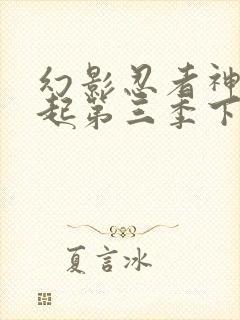 幻影忍者神
起第三季下
夏言冰